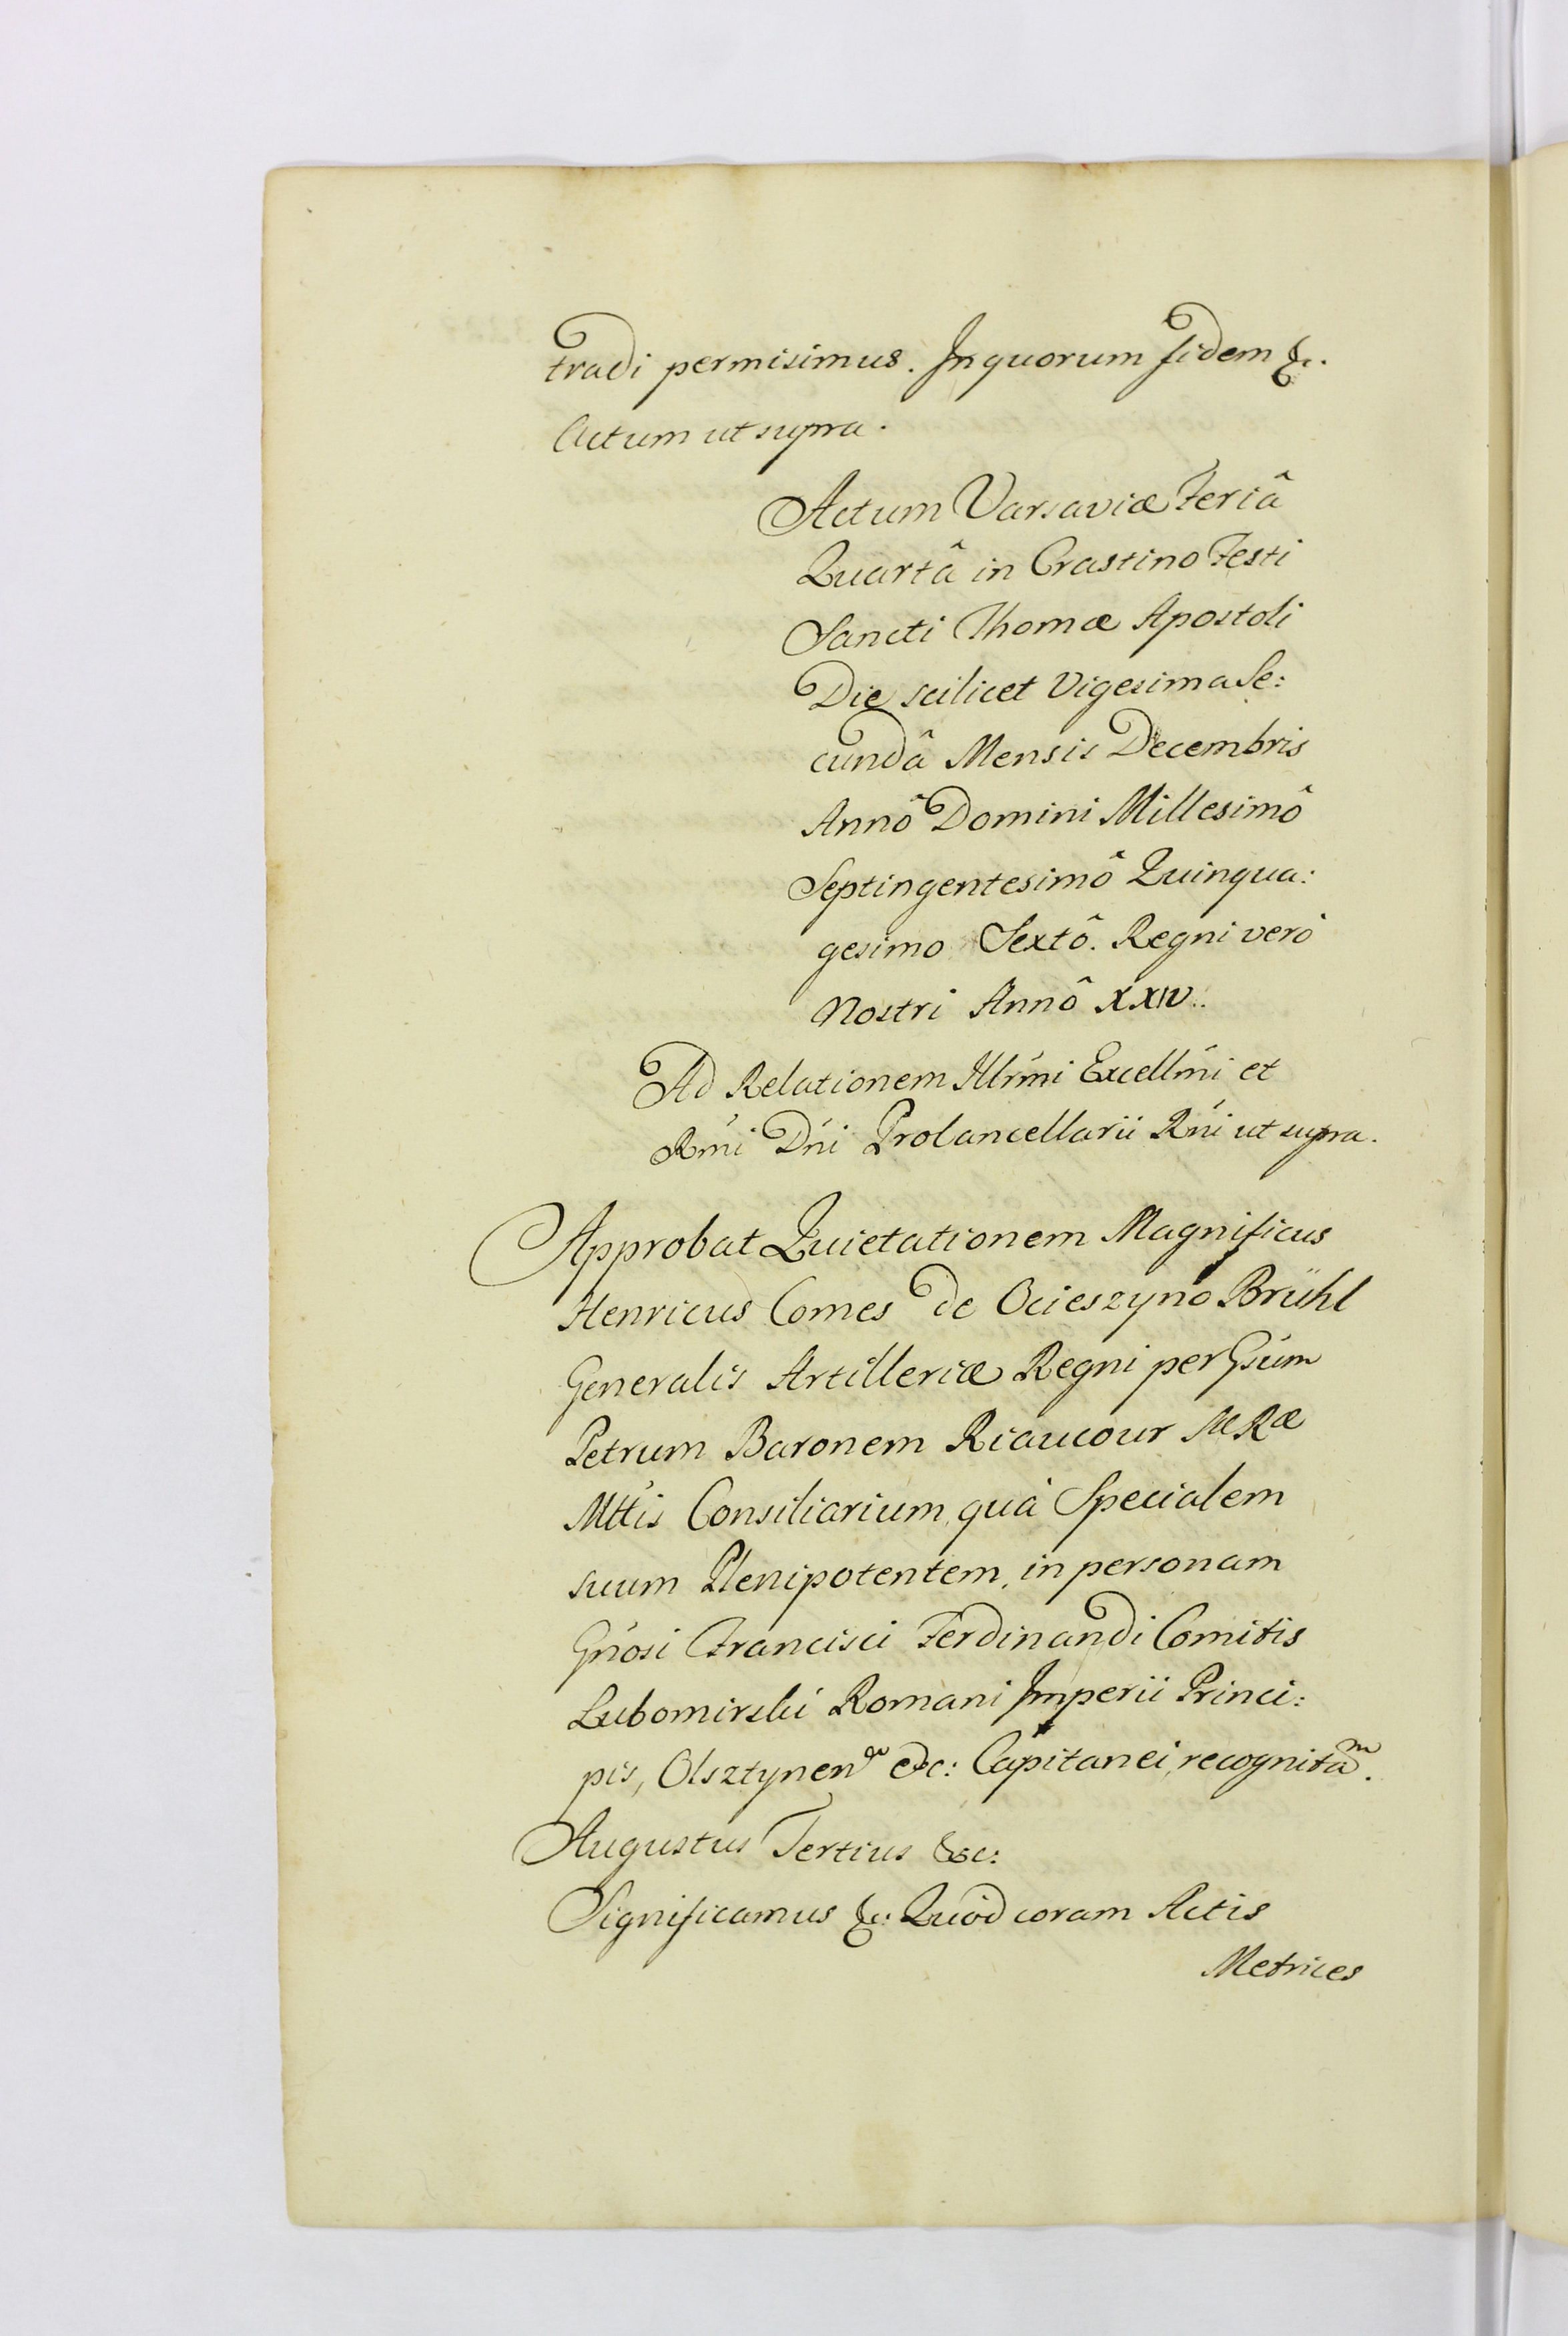 tradi permisimus. In quorum fidem &c.
Actum ut supra.
Actum Varsaviæ Feriâ
Quartâ in Crastino Festi
Sancti Thomæ Apostoli
Die scilicet Vigesima Se:
cundâ Mensis Decembris
Annô Domini Millesimô
Septingentesimô Quinqua:
gesimo Sextô. Regni verò
Nostri Annô XXIV..
Ad Relationem Illrmi Excellmi et
Rmi Dni ProCancellarii Rni ut supra.
Approbat Quietationem Magnificus
Henricus Comes de Ocieszyno Brühl
Generalis Artilleriæ Regni per Gsum
Petrum Baronem Riaucour SRæ
Mttis Consiliarium, quà Specialem
suum Plenipotentem, in personam
Gnosi Francisci Ferdinandi Comitis
Lubomirski Romani Imperii Princi:
pis, Olsztynen &c: Capitanei, recognitam.
Augustus Tertius &c:
Significamus &c: Quòd coram Actis
Metrices